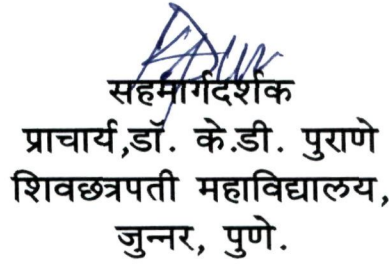 सहमार्गदर्शक
प्राचार्य,डॉ. के.डी. पुराणे
शिवछत्रपती महाविद्यालय,
जुन्नर, पुणे.